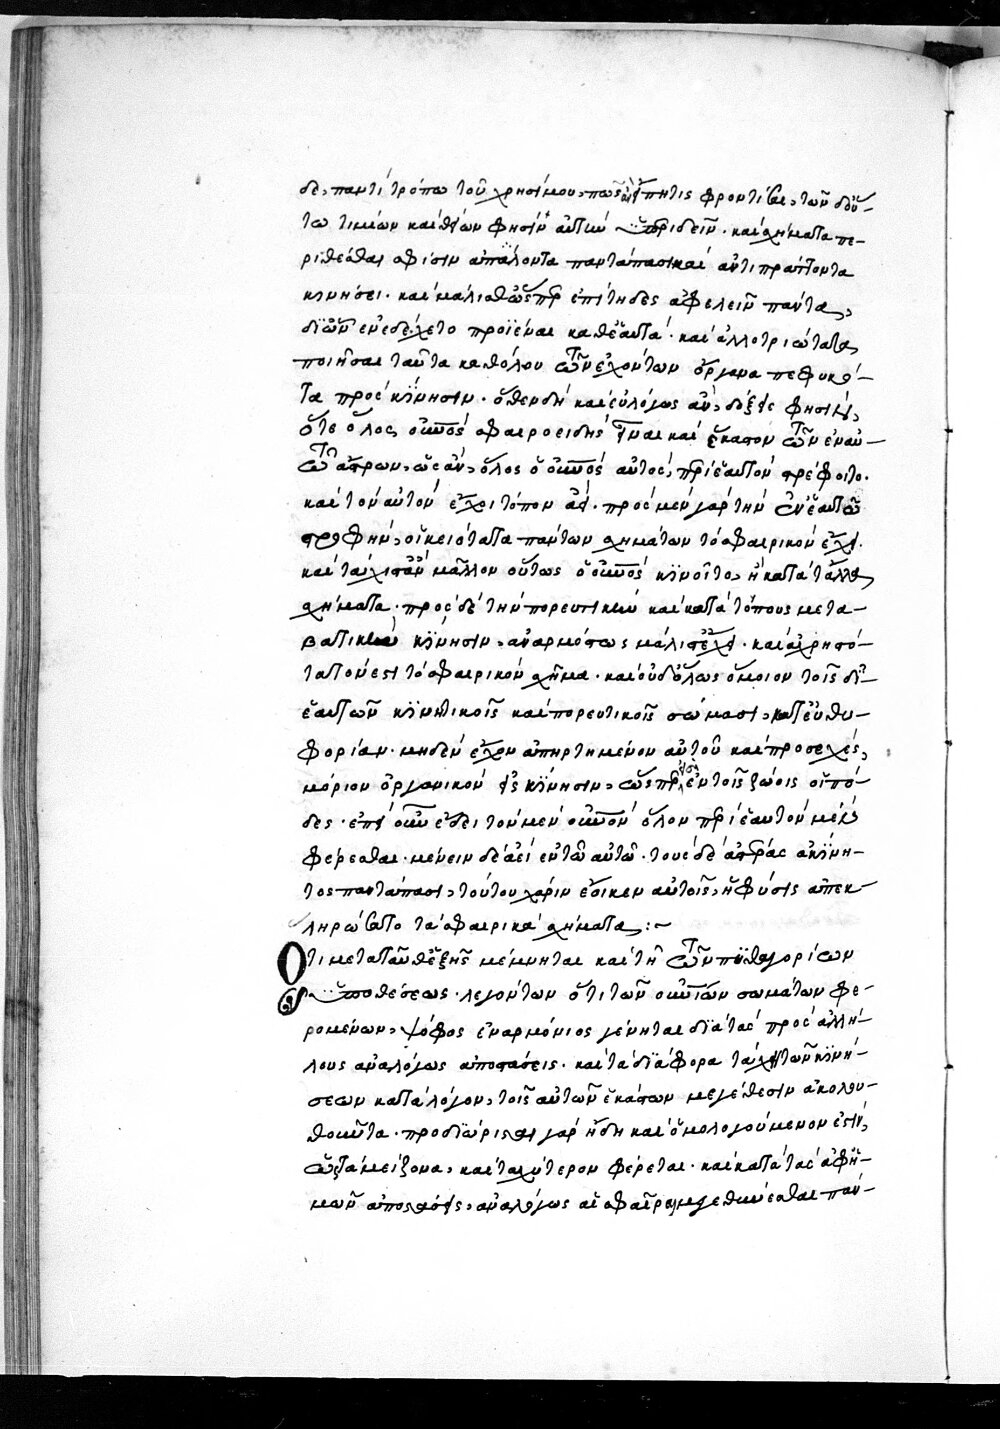 δε παντὶ τρόπω τοῦ χρησίμου, πῶς φροντίδα, τῶν οὕ-
τω τιμίων καὶ θείων φησὶν αὐτὴν ὑπεριδεῖν. καὶ σχήματα πε-
ριθέσθαι σφίσιν ἀπάδοντα παντάπασι καὶ ἀντιπράττοντα
κινήσει. καὶ μάλισθ' ὥσπερ ἐπίτηδες ἀφελεῖν πάντα,
δι' ὧν ἐνεδέχετο προϊέναι καθ' ἑαυτά. καὶ ἀλλοτριώτατα
ποιῆσαι ταῦτα καθόλου τῶν ἐχόντων ὄργανα πεφυκό-
τα πρὸς κίνησιν. ὅθεν δὴ καὶ εὐλόγως ἂν δόξειε φησὶν,
ὅτε ὅλος οὐρανὸς σφαιροειδὴς εἶναι καὶ ἕκαστον τῶν ἐν αὐ-
τῶ ἄστρων, ὡς ἂν ὅλος ὁ οὐρανὸς αὐτὸς περὶ ἑαυτὸν στρέφοιτο.
καὶ τὸν αὐτὸν ἔχοι τόπον ἀεί. πρὸς μὲν γὰρ τὴν ἐν ἑαυτῶ
στροφὴν, οἰκειότατα πάντων σχημάτων τὸ σφαιρικὸν ἔχει.
καὶ τάχιστ' ἂν μᾶλλον οὕτως ὁ οὐρανὸς κινοῖτο, ἢ κατὰ τἄλλα
σχήματα. πρὸς δὲ τὴν πορευτικὴν καὶ κατὰ τόπους μετα-
βατικὴν κίνησιν, ἀναρμόστως μάλιστ' ἔχει. καὶ ἀχρηστό-
τατόν ἐστι τὸ σφαιρικὸν σχῆμα. καὶ οὐδ' ὅλως ὅμοιον τοῖς δι'
ἑαυτῶν κινητικοῖς καὶ πορευτικοῖς σώμασι, κατ' εὐθυ-
φορίαν. μηδὲν ἔχον ἀπηρτημένον αὐτοῦ καὶ προσεχὲς,
μόριον ὀργανικὸν εἰς κίνησιν, ὥσπερ εἰσὶν ἐν τοῖς ζώοις οἱ πό-
δες. ἐπεὶ οὖν ἔδει τὸν μὲν οὐρανὸν ὅλον περὶ ἑαυτὸν μὲν
φέρεσθαι. μένειν δὲ ἀεὶ ἐν τῶ αὐτῶ. τοὺς δὲ ἀστέρας ἀκινή-
τος παντάπασι, τούτου χάριν ἔοικεν αὐτοῖς, ἡ φύσις ἀπεκ-
ληρώσατο τὰ σφαιρικὰ σχήματα :~
Ὅτι μεταταῦθ' ἑξῆς μέμνηται καὶ τῆς τῶν πυθαγορίων
ὑποθέσεως. λεγόντων ὅτι τῶν οὐρανίων σωμάτων φε-
ρομένων, ψόφος ἐναρμόνιος γένηται διὰ τὰς πρὸς ἀλλή-
λους ἀναλόγως ἀποστάσεις. καὶ τὰ διάφορα τάχη τῶν κινή-
σεων κατὰ λόγον, τοῖς αὐτῶν ἑκάστων μεγέθεσιν ἀκολου-
θοῦντα. προδιώρισται γὰρ ἤδη καὶ ὁμολογούμενον ἐστὶν,
ὡς τὰ μείζονα, καὶ ταχύτερον φέρεται. καὶ κατὰ τὰς ἀφ' ἡ-
μῶν ἀποστάσεις, ἀναλόγως αἱ σφαῖραι μεγεθύνεσθαι παν-